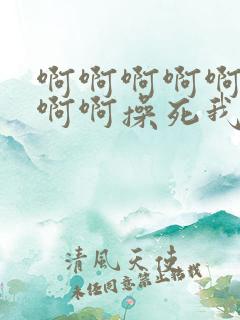 啊啊啊啊啊
啊啊操死我
清風天使
未任同意禁止轉載